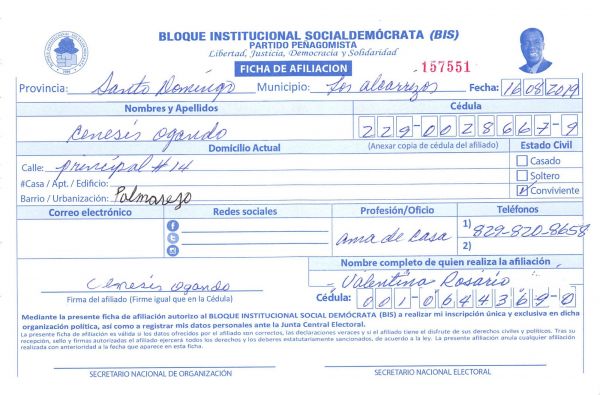 BLOQUE INSTITUCIONAL SOCIALDEMÓCRATA (BIS)
PARTIDO PEÑAGOMISTA
Libertad, Justicia, Democracia y Solidaridad
FICHA DE AFILIACION 157551
Provincia: Santo Domingo Municipio: Los alcarrizos Fecha: 16 08 2019
Nombres y Apellidos Cédula
Cenesis Ogando 229-0028667-9
Domicilio Actual (Anexar copia de cédula del afiliado) Estado Civil
Calle: principal # 14 Casado
#Casa / Apt. / Edificio: Soltero
Barrio / Urbanización: Palmarejo Conviviente
Correo electrónico Redes sociales Profesión/Oficio Teléfonos
ama de casa 1) 829-820-8658
2)
Nombre completo de quien realiza la afiliación
Cenesis Ogando Valentina Rosario
Firma del afiliado (Firme igual que en la Cédula) Cédula: 001-0644369-0
Mediante la presente ficha de afiliación autorizo al BLOQUE INSTITUCIONAL SOCIAL DEMÓCRATA (BIS) a realizar mi inscripción única y exclusiva en dicha
organización política, así como a registrar mis datos personales ante la Junta Central Electoral.
La presente ficha de afiliación es valida si los datos ofrecidos por el afiliado son correctos, las declaraciones veraces y si el afiliado tiene el disfrute de sus derechos civiles y políticos. Tras su
recepción, sello y firmas autorizadas el afiliado ejercerá todos los derechos y los deberes estatutariamente sancionados, de acuerdo a la ley. La presente afiliación anula cualquier afiliación
realizada con anterioridad a la fecha que aparece en esta ficha.
SECRETARIO NACIONAL DE ORGANIZACIÓN SECRETARIO NACIONAL ELECTORAL